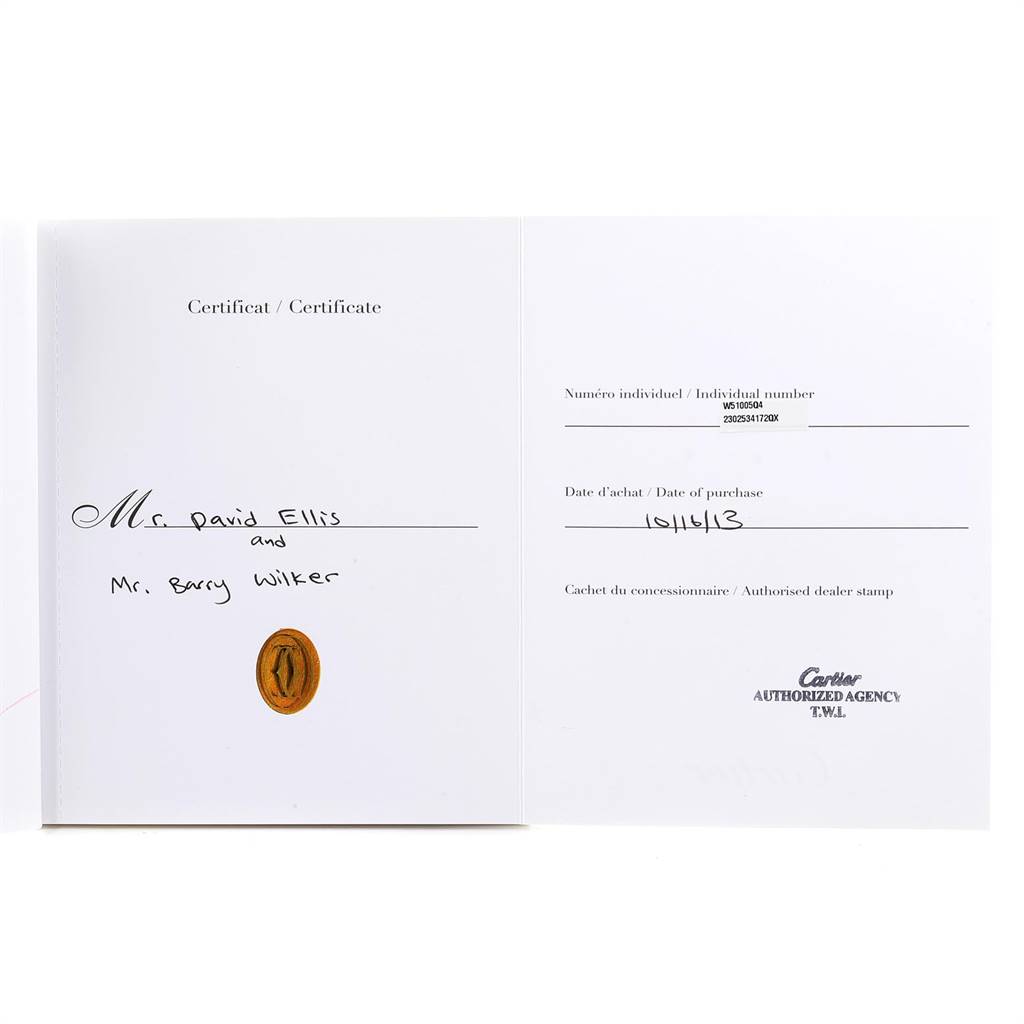 Certificat / Certificate
Mr. David Ellis
and
Mr. Barry Wilker
Numéro individuel / Individual number
W51005Q4
2302534172QX
Date d'achat / Date of purchase
10/16/13
Cachet du concessionnaire / Authorised dealer stamp
Cartier
AUTHORIZED AGENCY
T.W.I.